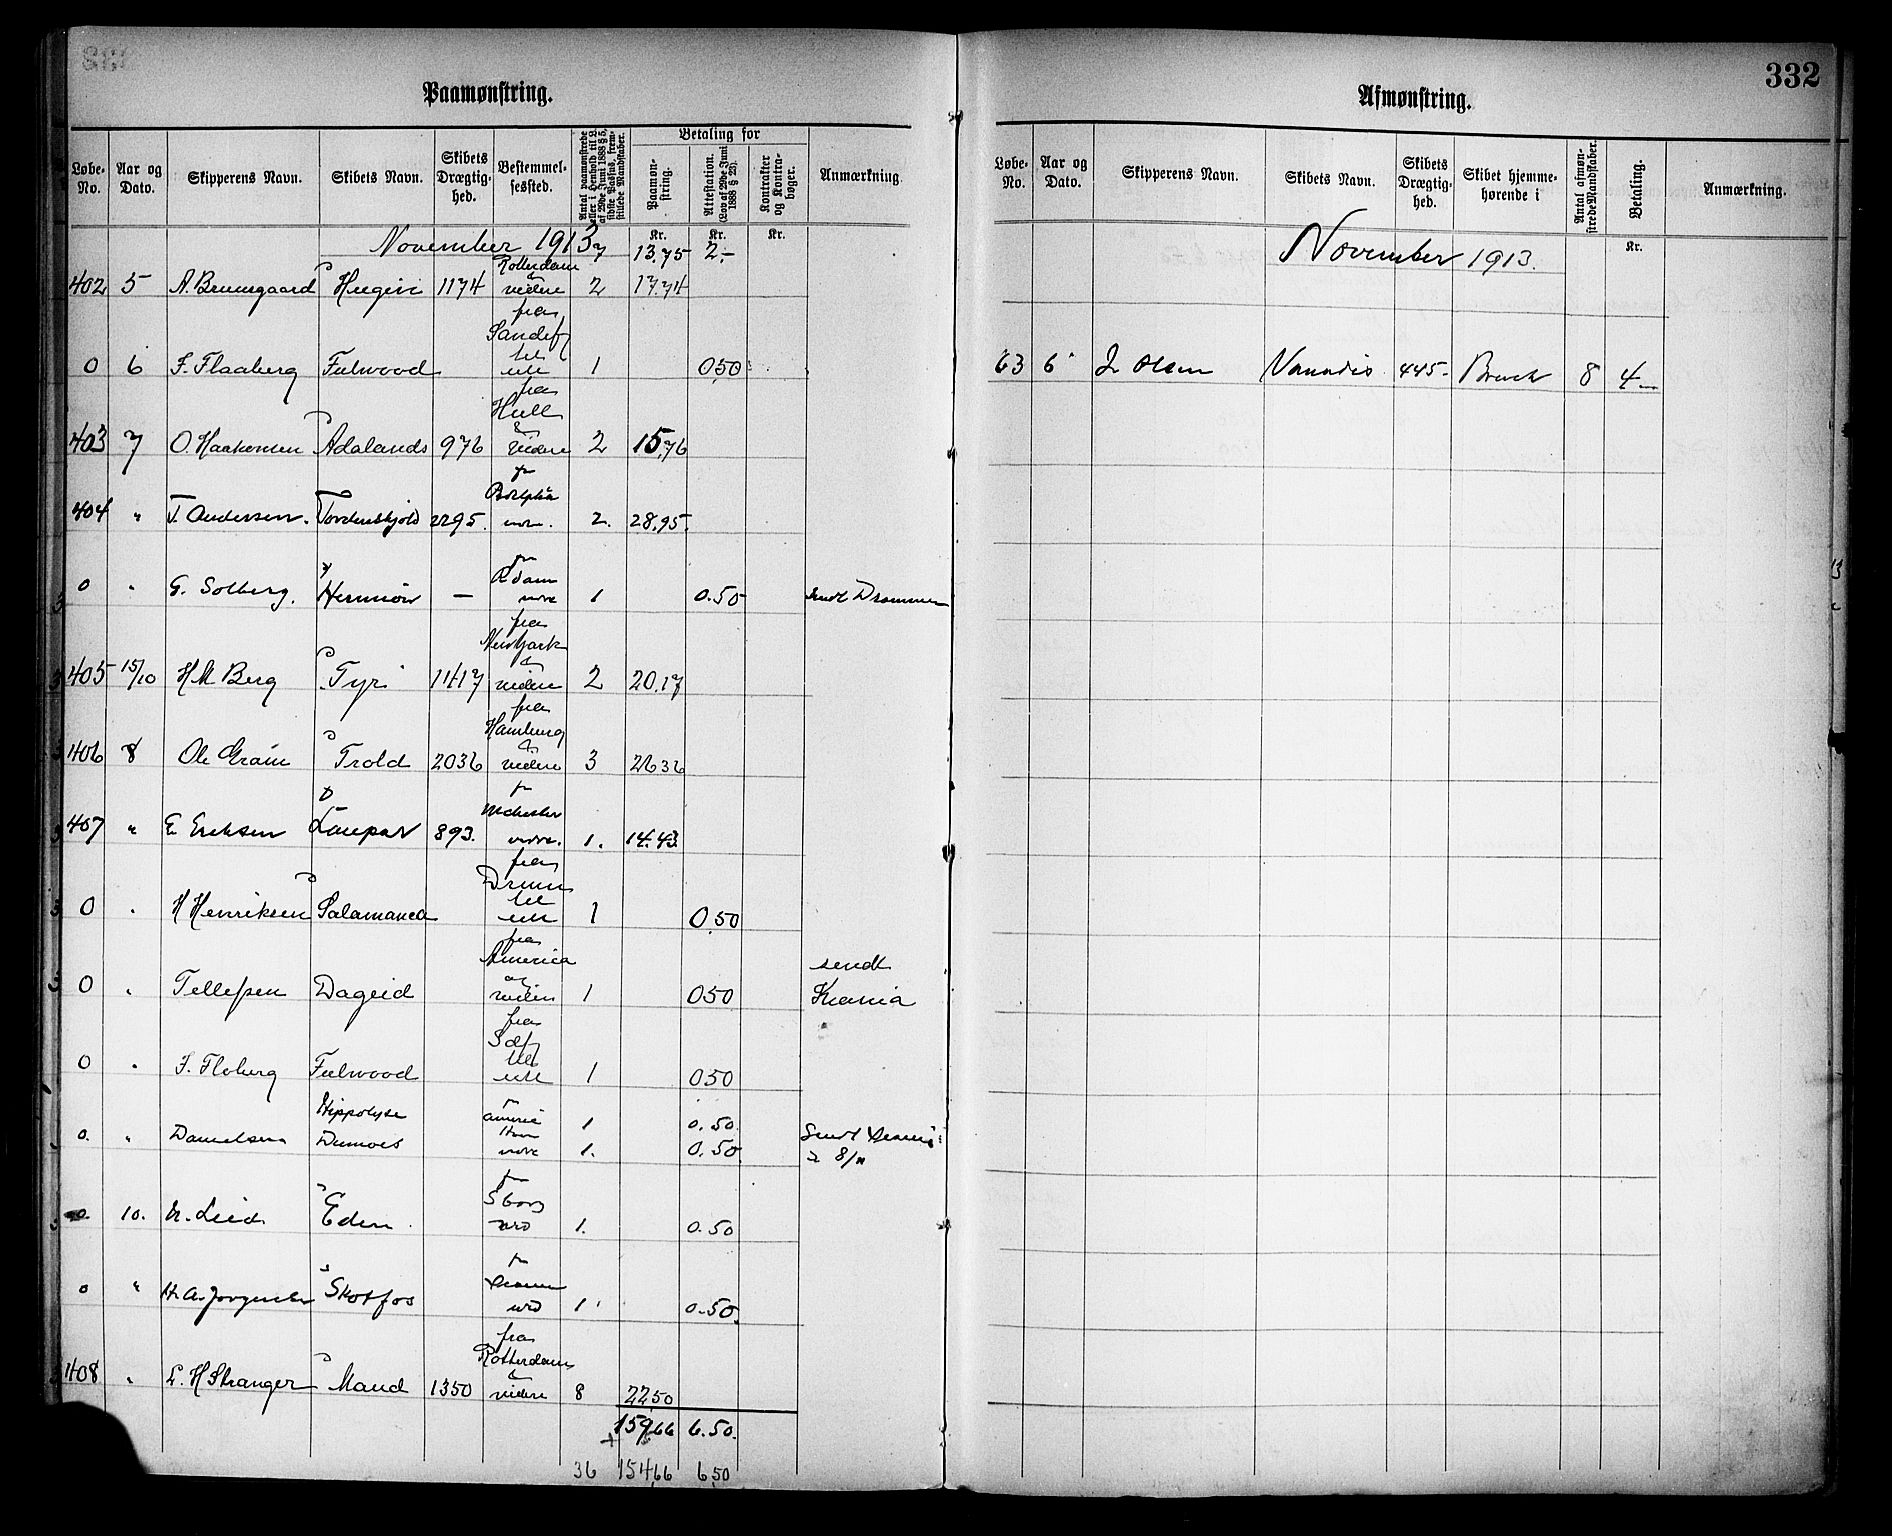 Paamønstring.
Løbe-No. Aar og Dato. Skipperens Navn. Skibets Navn. Skibets Drægtighed. Bestemmelsessted. Antal paamønstrede eller i Henhold til L. af 29de Juni 1888 § 5, sidste Passus, fremstillede Mandskaber. Betaling for Paamønstring. Attestation. (Lov af 29de Juni 1888 § 23). Kontrakter og Kontrabøger. Anmærkning.
Kr. Kr. Kr.
November 1913 7 13,75 2,-
402 5 A. Bruusgaard Hugin 1174 Rotterdam & videre 2 17.74
0 6 F. Flaaberg Fulwood fra Sandefj til 1 0,50
403 7 O. Haakonsen Adalands 976 fra Hull & videre 2 15,76
404 " T. Andersen. Tordenskjold 2295. 2. 28,95.
0 " G. Solberg. Hermion — Rdam 1 0.50 sendt Drammen
405 15/10 H M Berg Tyr 1417 fra New York & videre 2 20.17
406 8 Ole Gram Trold 2036 fra Hamburg & videre 3 26 36
407 " E. Eriksen 893. 1. 14.43
0 " H Henriksen Salamanca fra Dramn til 1 0,50
0 " Tellefsen Dageid fra America og videre 1 050 sendt Krania
0 " F. Floberg Fulwood fra Sdfj til 1 050
Hippolyte America 1 0.50.
0. " Danielsen Dumois 1. 0.50. Sendt
0 10. Eden Sborg 1. 0.50
0 " H. A. Jørgensen Skotfos 1 0.50.
408 " L. H Stranger Maud 1350 fra Rotterdam & videre 8 22,50
159,66 6.50.
36 154,66 6,50
332
Afmønstring.
Løbe-No. Aar og Dato. Skipperens Navn. Skibets Navn. Skibets Drægtighed. Skibet hjemmehørende i Antal afmønstrede Mandskaber. Betaling. Anmærkning.
Kr.
November 1913.
63 6 Olsen Vanadis 445 8 4—